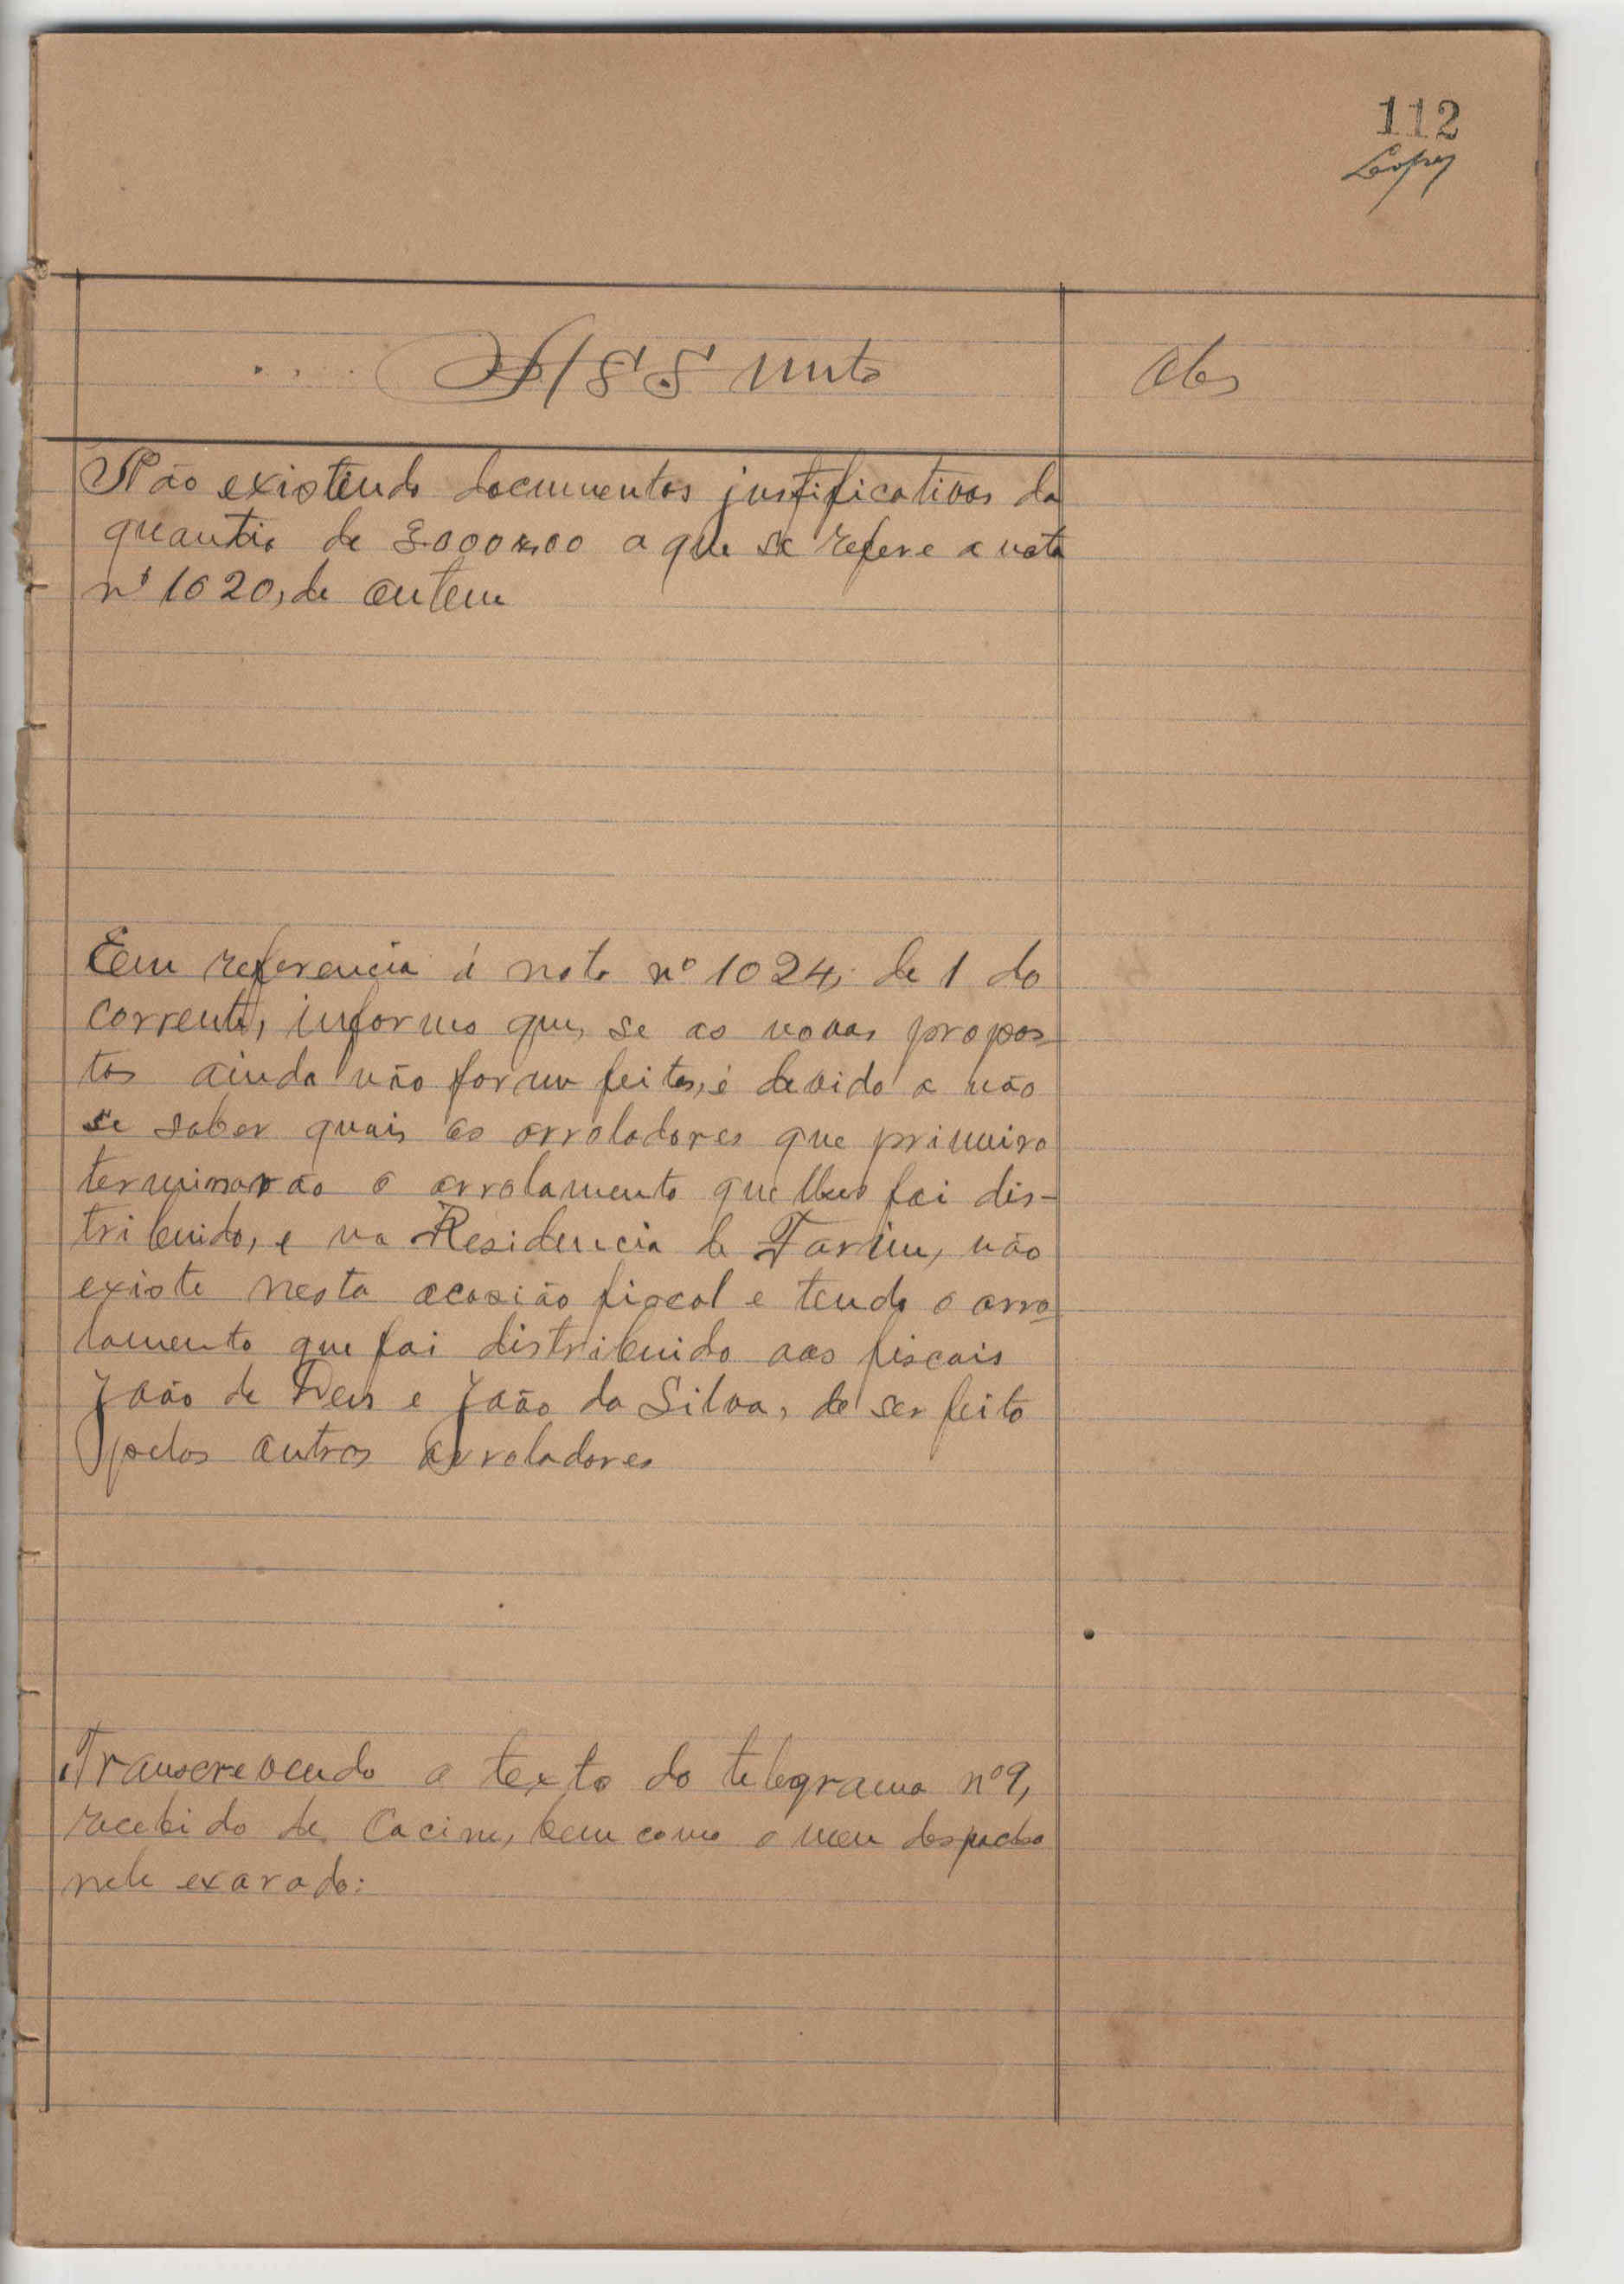 112
Lopes
Assunto
Obs
Não existindo documentos justificativos da
quantia de 3.000$00 a que se refere a nota
nº 1020, de ontem
Em referencia á nota nº 1024, de 1 do
corrente, informo que, se as novas propos-
tas ainda não foram feitas, é devido a não
se saber quais os arroladores que primeiro
terminarão o arrolamento que lhes foi dis-
tribuido, e na Residencia de Farim, não
existe nesta ocasião fiscal e tendo o arro-
lamento que foi distribuido aos fiscais
João de Deus e João da Silva, de ser feito
pelos outros arroladores
Transcrevendo o texto do telegrama nº 9,
recebido de Cacine, bem como o meu despacho
nele exarado: